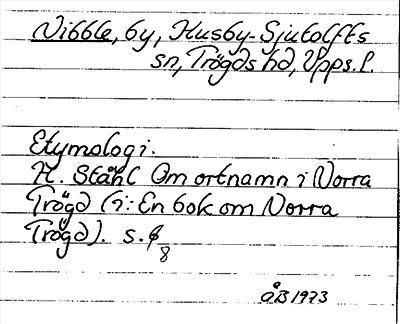 Vibble, by, Husby-Sjutolfts
sn, Trögds hd, Upps.l.
Etymologi.
H. Ståhl Om ortnamn i Norra
Trögd (i: En bok om Norra
Trögd). s. 8
ÅB 1973